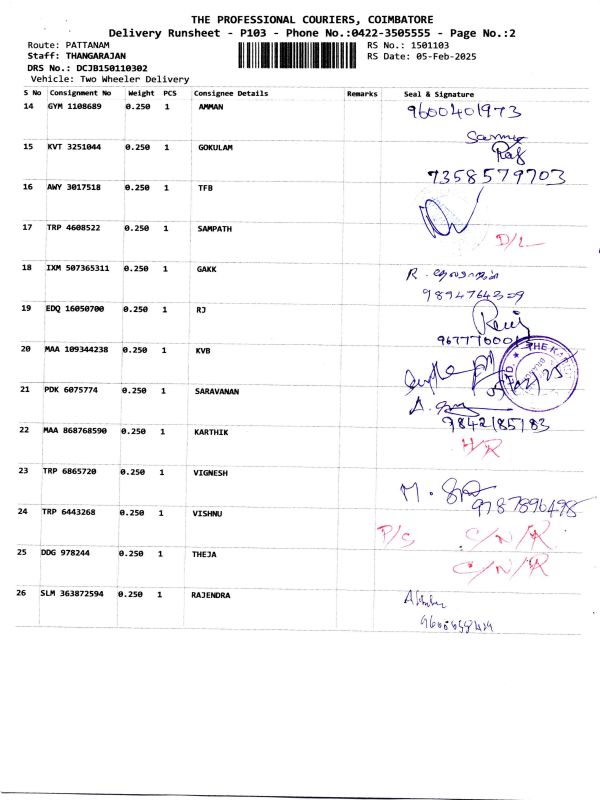 THE PROFESSIONAL COURIERS, COIMBATORE
Delivery Runsheet - P103 - Phone No.:0422-3505555 - Page No.:2
Route: PATTANAM
RS No.: 1501103
Staff: THANGARAJAN
RS Date: 05-Feb-2025
DRS No.: DCJB150110302
Vehicle: Two Wheeler Delivery
S No Consignment No Weight PCS Consignee Details Remarks Seal & Signature
14 GYM 1108689 0.250 1 AMMAN 9600401973
15 KVT 3251044 0.250 1 GOKULAM
7358579703
16 AWY 3017518 0.250 1 TFB
17 TRP 4608522 0.250 1 SAMPATH D/L
18 IXM 507365311 0.250 1 GAKK R.
19 EDQ 16050700 0.250 1 RJ
20 MAA 109344238 0.250 1 KVB
21 PDK 6075774 0.250 1 SARAVANAN
9842185783
22 MAA 868768590 0.250 1 KARTHIK H/R
23 TRP 6865720 0.250 1 VIGNESH M.
9787890498
24 TRP 6443268 0.250 1 VISHNU P/S C/N/R
25 DDG 978244 0.250 1 THEJA C/N/R
26 SLM 363872594 0.250 1 RAJENDRA